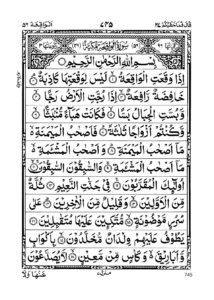 بِسْمِ اللّٰهِ الرَّحْمٰنِ الرَّحِيْمِ
اِذَا وَقَعَتِ الْوَاقِعَةُ لَيْسَ لِوَقْعَتِهَا كَاذِبَةٌ
خَافِضَةٌ رَّافِعَةٌ اِذَا رُجَّتِ الْاَرْضُ رَجًّا
وَّبُسَّتِ الْجِبَالُ بَسًّا فَكَانَتْ هَبَآءً مُّنْۢبَثًّا
وَّكُنْتُمْ اَزْوَاجًا ثَلٰثَةً فَاَصْحٰبُ الْمَيْمَنَةِ
مَآ اَصْحٰبُ الْمَيْمَنَةِ وَاَصْحٰبُ الْمَشْـَٔمَةِ
مَآ اَصْحٰبُ الْمَشْـَٔمَةِ وَالسّٰبِقُوْنَ السّٰبِقُوْنَ
اُولٰٓئِكَ الْمُقَرَّبُوْنَ فِيْ جَنّٰتِ النَّعِيْمِ ثُلَّةٌ
مِّنَ الْاَوَّلِيْنَ وَقَلِيْلٌ مِّنَ الْاٰخِرِيْنَ عَلٰى سُرُرٍ
مَّوْضُوْنَةٍ مُّتَّكِـِٕيْنَ عَلَيْهَا مُتَقٰبِلِيْنَ
يَطُوْفُ عَلَيْهِمْ وِلْدَانٌ مُّخَلَّدُوْنَ بِاَكْوَابٍ
وَّاَبَارِيْقَ وَكَاْسٍ مِّنْ مَّعِيْنٍ لَّا يُصَدَّعُوْنَ
عَنْهَا وَلَا
745